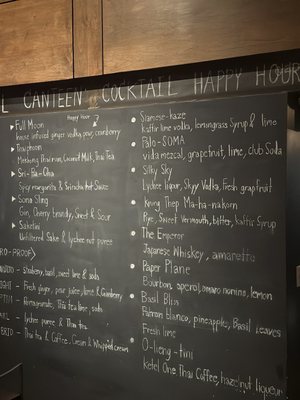 L CANTEEN COCKTAIL HAPPY HOUR
Full Moon
Happy Hour
house infused ginger vodka, pear, cranberry
Typhoon
Mekhong, Coconut Milk, Thai Tea
Spicy margarita & Sriracha Hot Sauce
Siam Sling
Gin, Cherry brandy, Sweet & Sour
Saketini
Unfiltered Sake & lychee-nut puree
RO-PROOF)
Strawberry, basil, sweet lime & soda
IGHT - Fresh ginger, pear juice, lime & Cranberry
Pomegranate, Thai tea, lime, soda
lychee puree & Thai tea
BRID - Thai tea & Coffee, Cream & Whipped cream
Siamese-kaze
Kaffir lime vodka, lemongrass Syrup & lime
Palo-SOMA
vida mezcal, grapefruit, lime, club Soda
Silky Sky
Lychee liquor, Skyy Vodka, Fresh grapefruit
Krung Thep Ma-ha-na-korn
Rye, Sweet Vermouth, bitter, kaffir Syrup
The Emperor
Japanese Whiskey, amaretto
Paper Plane
Bourbon, aperol, amaro nonino, lemon
Basil Bliss
Patron blanco, pineapple, Basil Leaves
Fresh lime
O-lieng-tini
Ketel One Thai Coffee, hazelnut liqueur